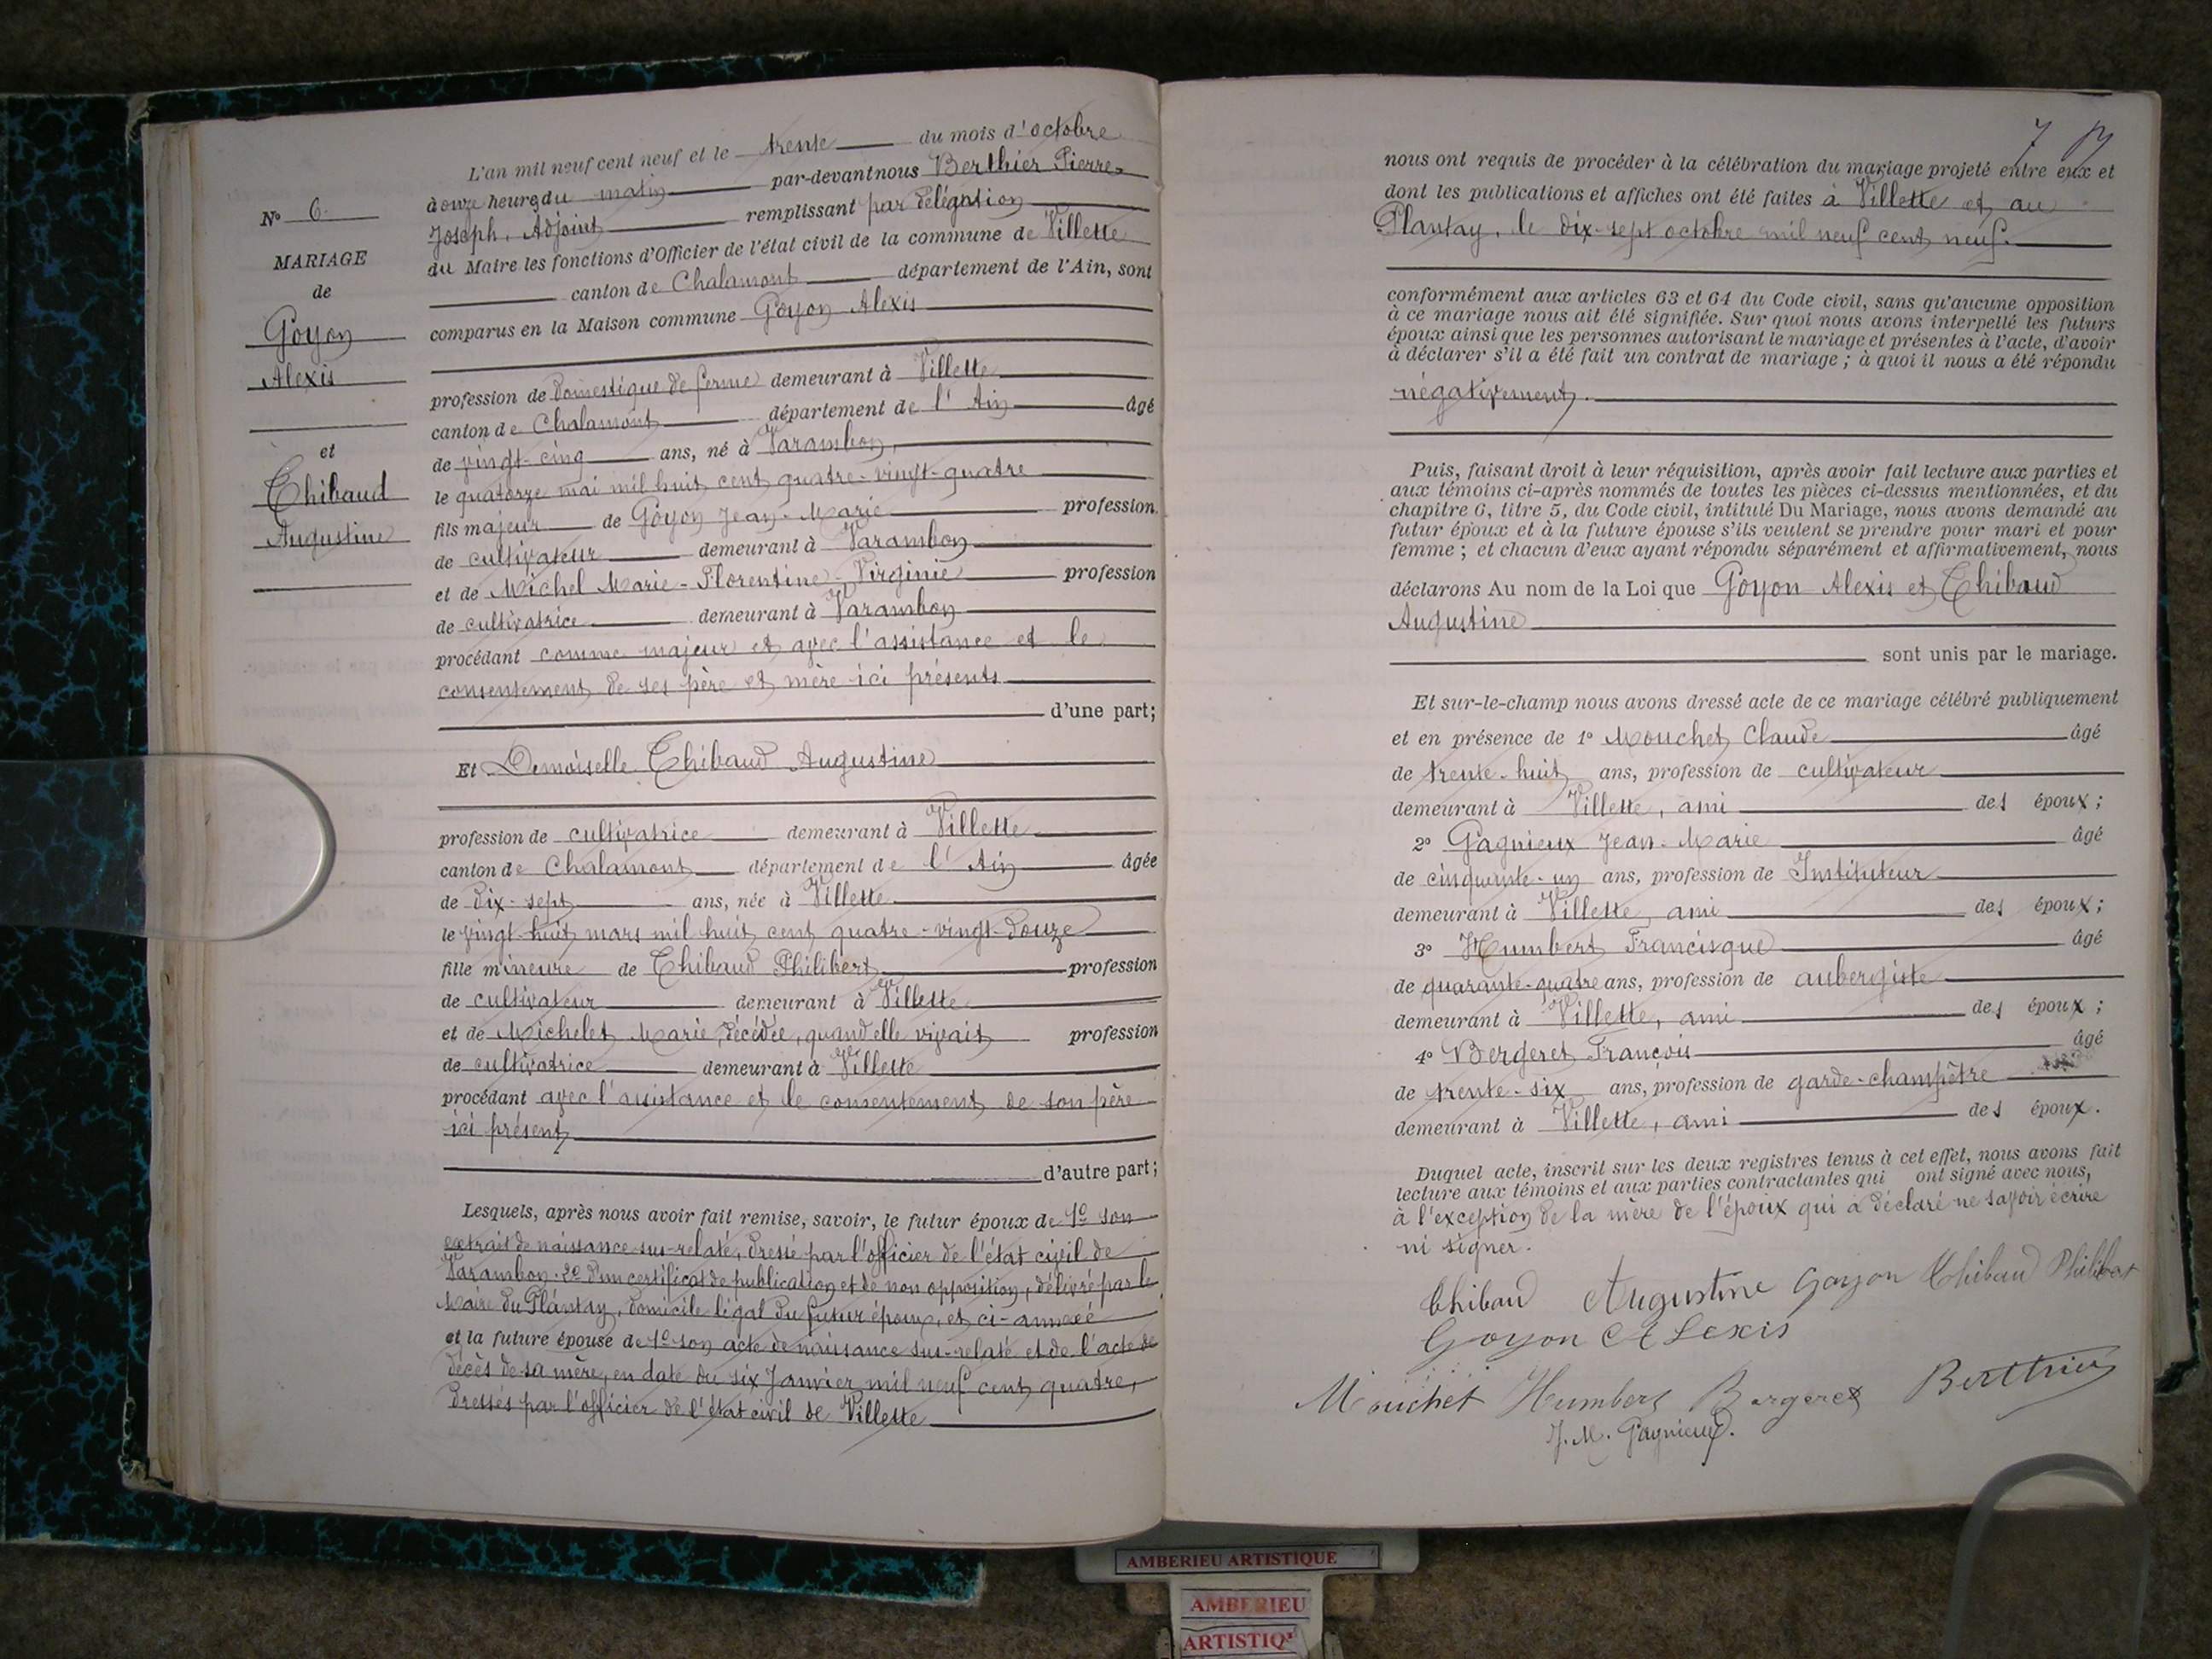 N° 6
MARIAGE
de
Goyon
Alexis
et
Thibaud
Augustine
L'an mil neuf cent neuf et le trente du mois d'octobre
à onze heures du matin par-devant nous Berthier Pierre-
Joseph, Adjoint remplissant par délégation
du Maire les fonctions d'Officier de l'état civil de la commune de Villette
canton de Chalamont département de l'Ain, sont
comparus en la Maison commune Goyon Alexis
profession de domestique de ferme demeurant à Villette
canton de Chalamont département de l'Ain âgé
de vingt-cinq ans, né à Varambon,
le quatorze mai mil huit cent quatre-vingt-quatre
fils majeur de Goyon Jean-Marie profession
de cultivateur demeurant à Varambon
et de Michel Marie-Florentine-Virginie profession
de cultivatrice demeurant à Varambon
procédant comme majeur et avec l'assistance et le
consentement de ses père et mère ici présents
d'une part;
Et Demoiselle Thibaud Augustine
profession de cultivatrice demeurant à Villette
canton de Chalamont département de l'Ain âgée
de dix-sept ans, née à Villette
le vingt-huit mars mil huit cent quatre-vingt-douze
fille mineure de Thibaud Philibert profession
de cultivateur demeurant à Villette
et de Michelet Marie, décédée, quand elle vivait profession
de cultivatrice demeurant à Villette
procédant avec l'assistance et le consentement de son père
ici présent
d'autre part;
Lesquels, après nous avoir fait remise, savoir, le futur époux de 1° son
extrait de naissance sus-relaté, dressé par l'officier de l'état civil de
Varambon. 2° d'un certificat de publication et de non opposition, délivré par le
Maire du Plantay, domicile légal du futur époux, et ci-annexé
et la future épouse de 1° son acte de naissance sus-relaté et de l'acte de
décès de sa mère, en date du six Janvier mil neuf cent quatre,
dressés par l'officier de l'état civil de Villette
7
nous ont requis de procéder à la célébration du mariage projeté entre eux et
dont les publications et affiches ont été faites à Villette et au
Plantay, le dix-sept octobre mil neuf cent neuf.
conformément aux articles 63 et 64 du Code civil, sans qu'aucune opposition
à ce mariage nous ait été signifiée. Sur quoi nous avons interpellé les futurs
époux ainsi que les personnes autorisant le mariage et présentes à l'acte, d'avoir
à déclarer s'il a été fait un contrat de mariage ; à quoi il nous a été répondu
négativement.
Puis, faisant droit à leur réquisition, après avoir fait lecture aux parties et
aux témoins ci-après nommés de toutes les pièces ci-dessus mentionnées, et du
chapitre 6, titre 5, du Code civil, intitulé Du Mariage, nous avons demandé au
futur époux et à la future épouse s'ils veulent se prendre pour mari et pour
femme ; et chacun d'eux ayant répondu séparément et affirmativement, nous
déclarons Au nom de la Loi que Goyon Alexis et Thibaud
Augustine
sont unis par le mariage.
Et sur-le-champ nous avons dressé acte de ce mariage célébré publiquement
et en présence de 1° Mouchet Claude âgé
de trente-huit ans, profession de cultivateur
demeurant à Villette, ami des époux ;
2° Gagnieux Jean-Marie âgé
de cinquante-un ans, profession de Instituteur
demeurant à Villette, ami des époux ;
3° Humbert Francisque âgé
de quarante-quatre ans, profession de aubergiste
demeurant à Villette, ami des époux ;
4° Bergeret François âgé
de trente-six ans, profession de garde-champêtre
demeurant à Villette, ami des époux.
Duquel acte, inscrit sur les deux registres tenus à cet effet, nous avons fait
lecture aux témoins et aux parties contractantes qui ont signé avec nous,
à l'exception de la mère de l'époux qui a déclaré ne savoir écrire
ni signer.
Thibaud Augustine Goyon Thibaud Philibert
Goyon Alexis
Mouchet Humbert Bergeret Berthier
J. M. Gagnieux.
AMBERIEU ARTISTIQUE
AMBERIEU
ARTISTIQ